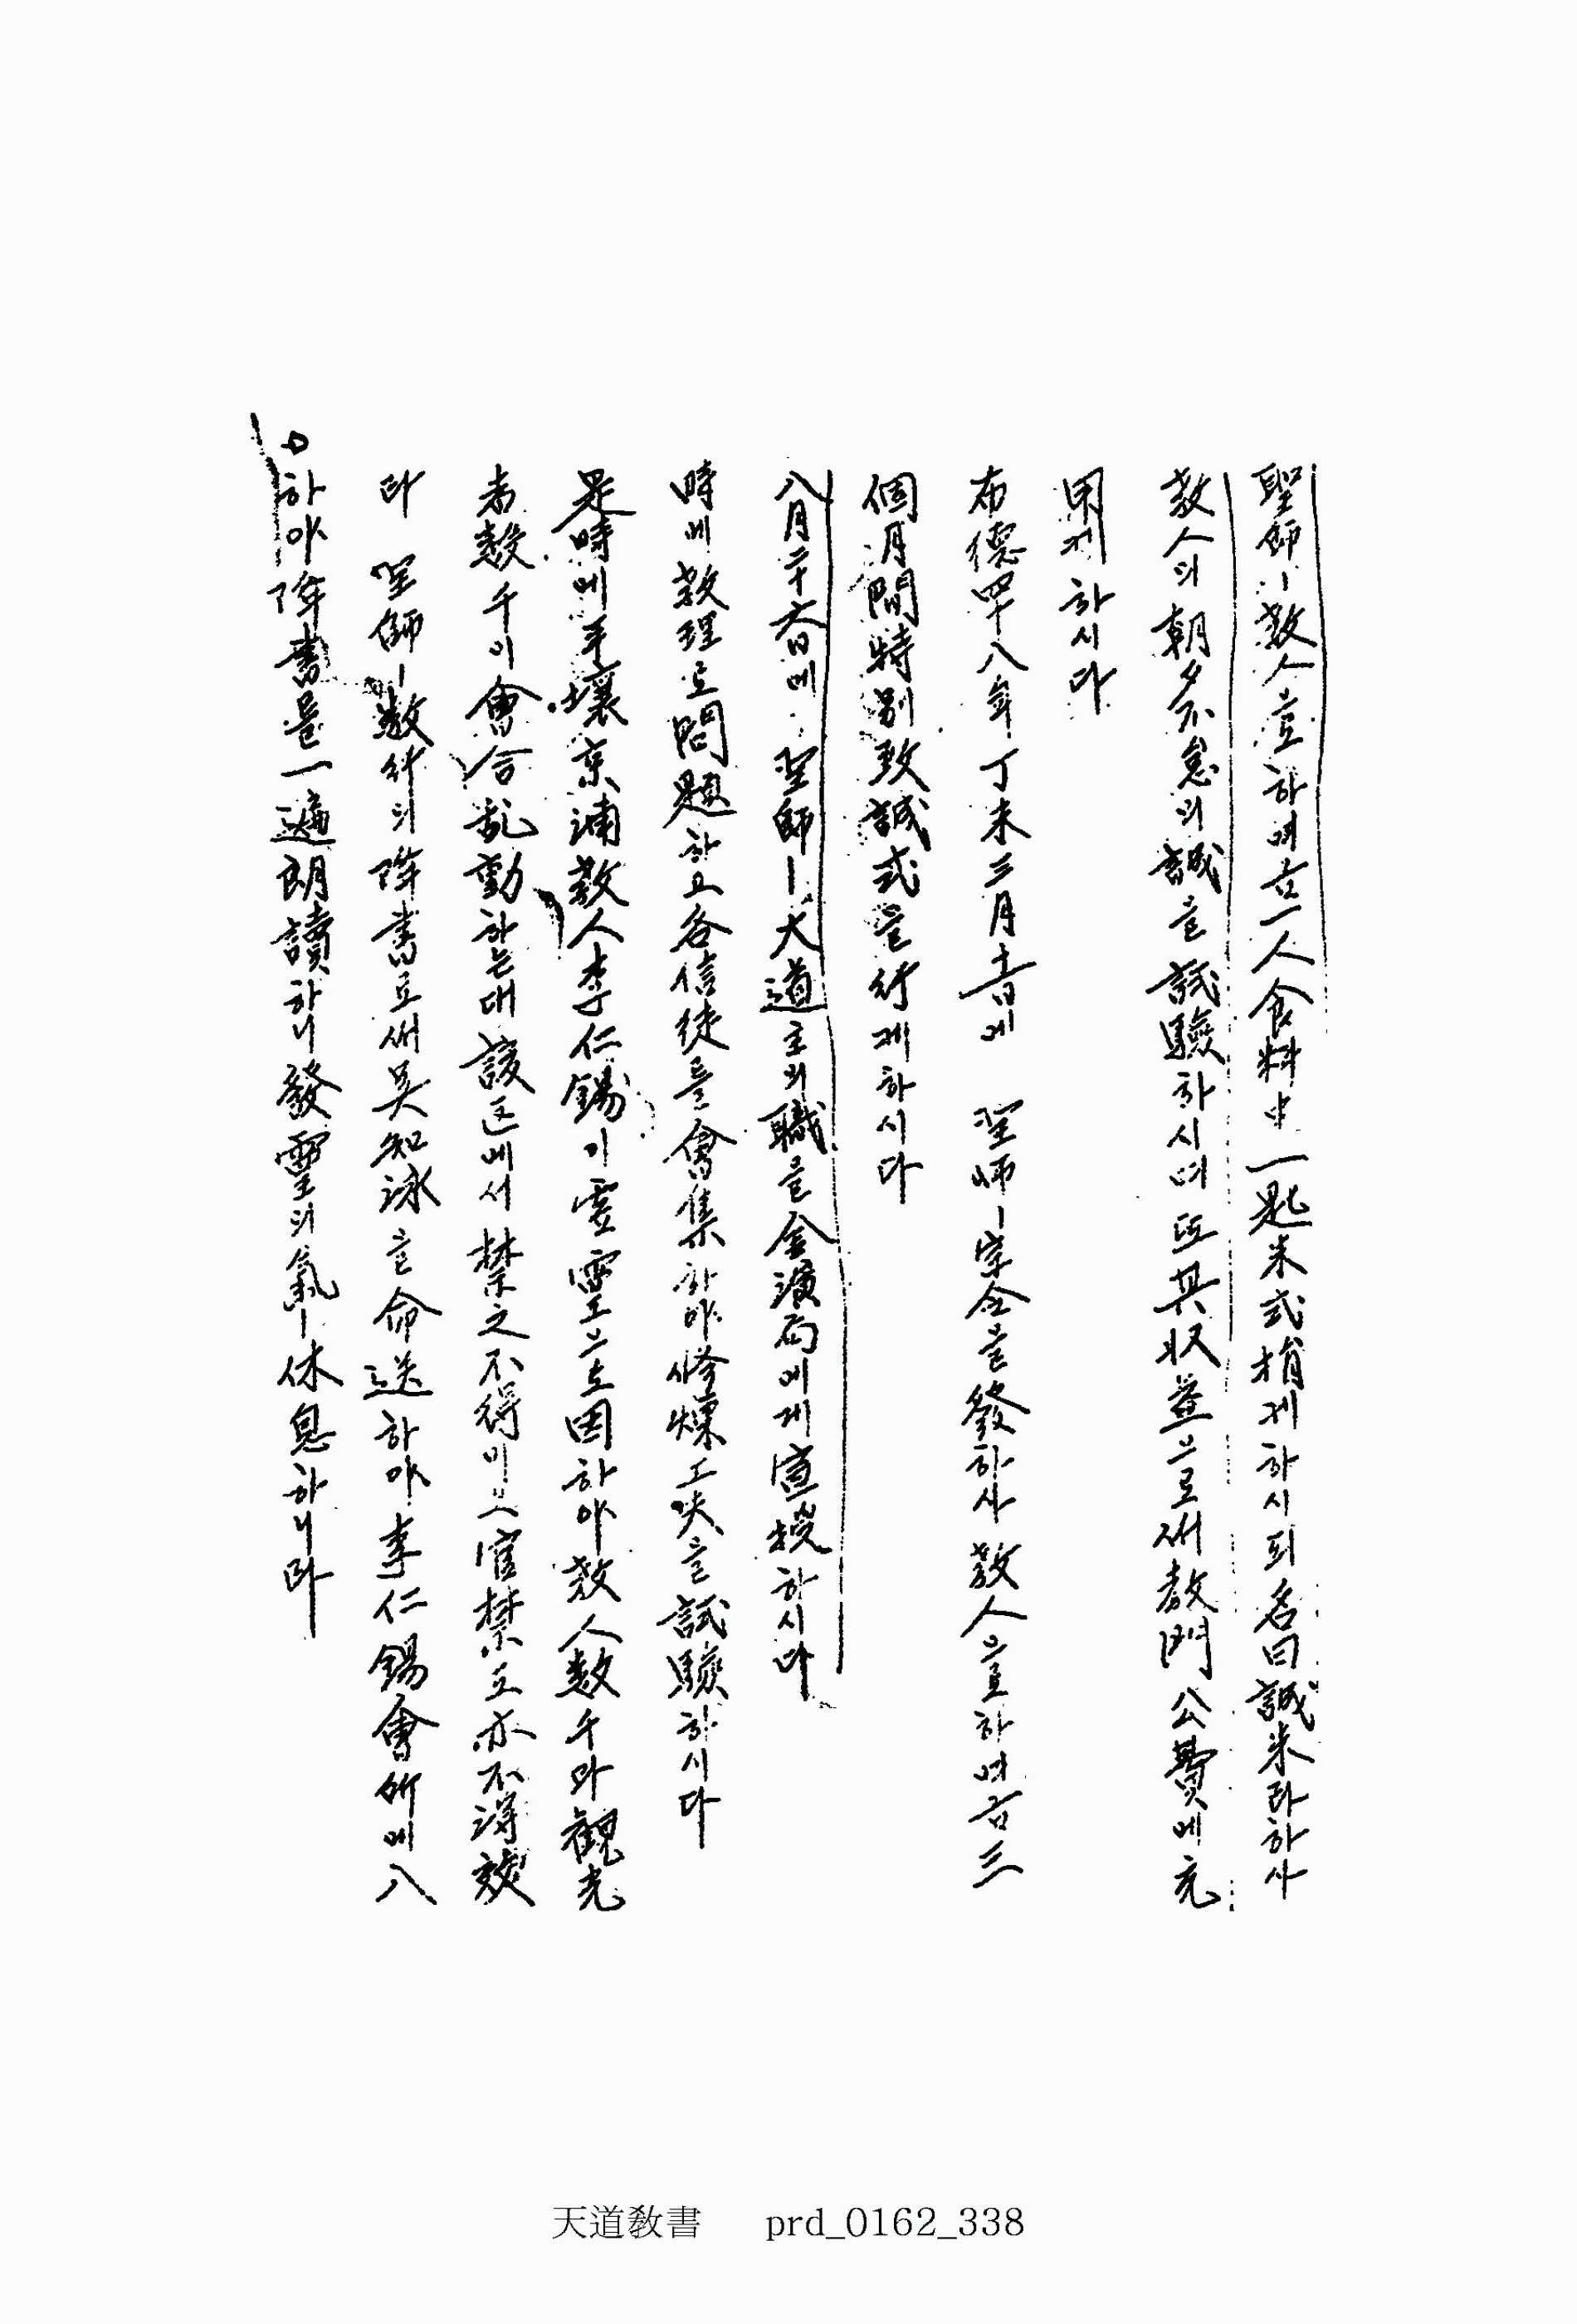 聖師ㅣ敎人으로하여금一人食料中一匙米式捐케하시되名曰誠米라하사
敎人의朝夕不怠의誠을試驗하시며또其收益으로써敎門公費에充
用케하시다
布德四十八年丁未三月十一日에 聖師ㅣ宗令을發하사敎人으로하여금三
個月間特別致誠式을行케하시다
八月二十六日에 聖師ㅣ大道主의職을金演局에게宣授하시다
時에敎理로問題하고各信徒를會集하야修煉工夫을試驗하시다
是時에平壤京浦敎人李仁錫이虛靈으로因하야敎人數千과觀光
者數千이會合亂動하는대該區에서禁之不得이오官禁도亦不得效
라 聖師ㅣ數行의降書로써吳知泳을命送하야李仁錫會所에入
하야降書를一遍朗讀하니發靈의氣ㅣ休息하니라
天道敎書 prd_0162_338